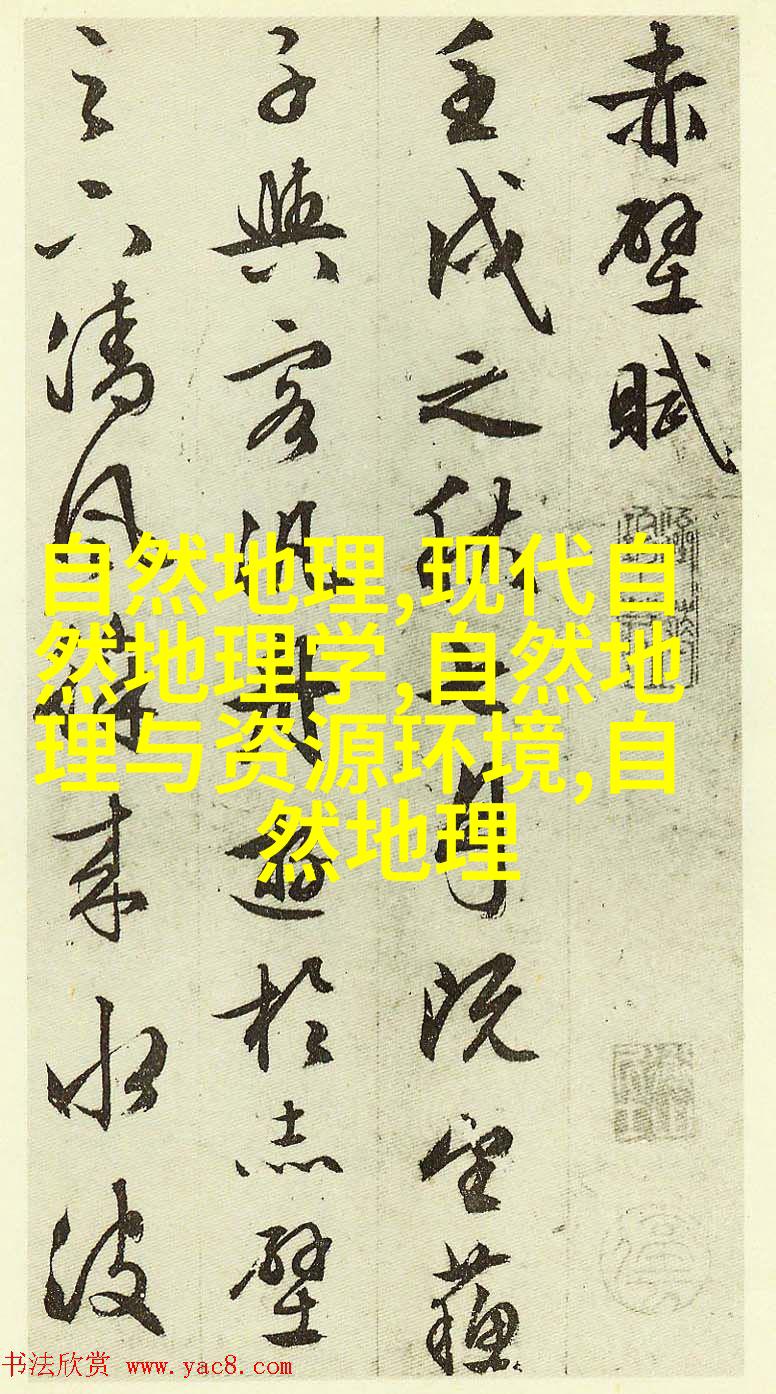 赤壁賦
壬戌之秋七月既望蘇
子與客泛舟遊於赤壁
之下清風徐來水波
自然地理,现代自
然地理学,自然地
理与资源环境,自
然地理
书法欣赏 www.yac8.com